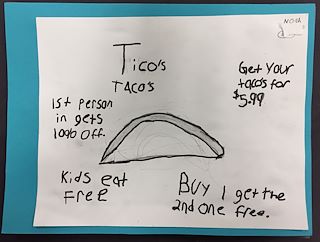 Noah
Tico's
Tacos
Get Your
tacos for
$5.99
1st person
in gets
100% off.
Kids eat
Free
Buy 1 get the
2nd one free.